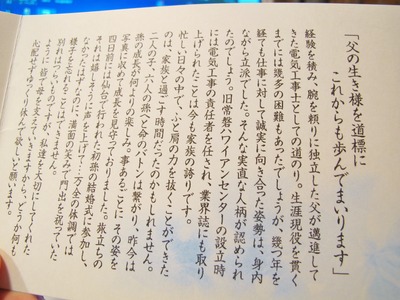 「父の生き様を道標に
これからも歩んでまいります」
経験を積み、腕を頼りに独立した父が邁進して
きた電気工事士としての道のり。生涯現役を貫く
までには幾多の困難もあったでしょうが、幾つ年を
経ても仕事に対して誠実に向き合った姿勢は、身内
ながら立派でした。そんな実直な人柄が認められ
たのでしょう。旧常磐ハワイアンセンターの設立時
には電気工事の責任者を任され、業界誌にも取り
上げられたことは今も家族の誇りです。
忙しい日々の中で、ふと肩の力を抜くことができた
のは、家族と過ごす時間だったのかもしれません。
二人の子、六人の孫へと命のバトンは繋がり、昨今は
孫の成長が何よりの楽しみ。事あるごとに その姿を
写真に収めて成長を見守っておりました。旅立ちの
四日前には仙台で行われた初孫の結婚式に参加し、
それは嬉しそうに声を上げて…万全の体調では
なかったはずなのに、満面の笑みで門出を祝っていた
様子を忘れることはできません。
別れはつらいものですが、私達を大切にしてくれた
ように皆で母を支えていきますから、どうか何も
心配せずゆっくり休んで欲しいと願います。